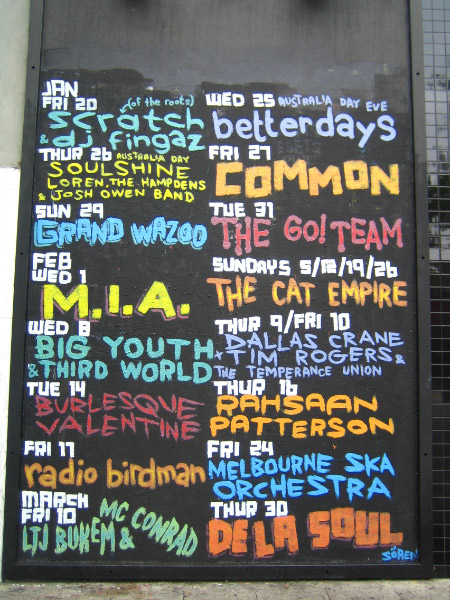 JAN
FRI 20
(of the roots)
scratch
& dj fingaz
THUR 26 AUSTRALIA DAY
SOULSHINE
LOREN, THE HAMPDENS
& JOSH OWEN BAND
SUN 29
GRAND WAZOO
FEB
WED 1
M.I.A.
WED 8
BIG YOUTH
& THIRD WORLD
TUE 14
BURLESQUE
VALENTINE
FRI 17
radio birdman
MARCH
FRI 10
LTJ BUKEM &
MC CONRAD
WED 25 AUSTRALIA DAY EVE
betterdays
FRI 27
COMMON
TUE 31
THE GO! TEAM
SUNDAYS 5/12/19/26
THE CAT EMPIRE
THUR 9/FRI 10
DALLAS CRANE
+ TIM ROGERS &
THE TEMPERANCE UNION
THUR 16
RAHSAAN
PATTERSON
FRI 24
MELBOURNE SKA
ORCHESTRA
THUR 30
DE LA SOUL
SÖREN